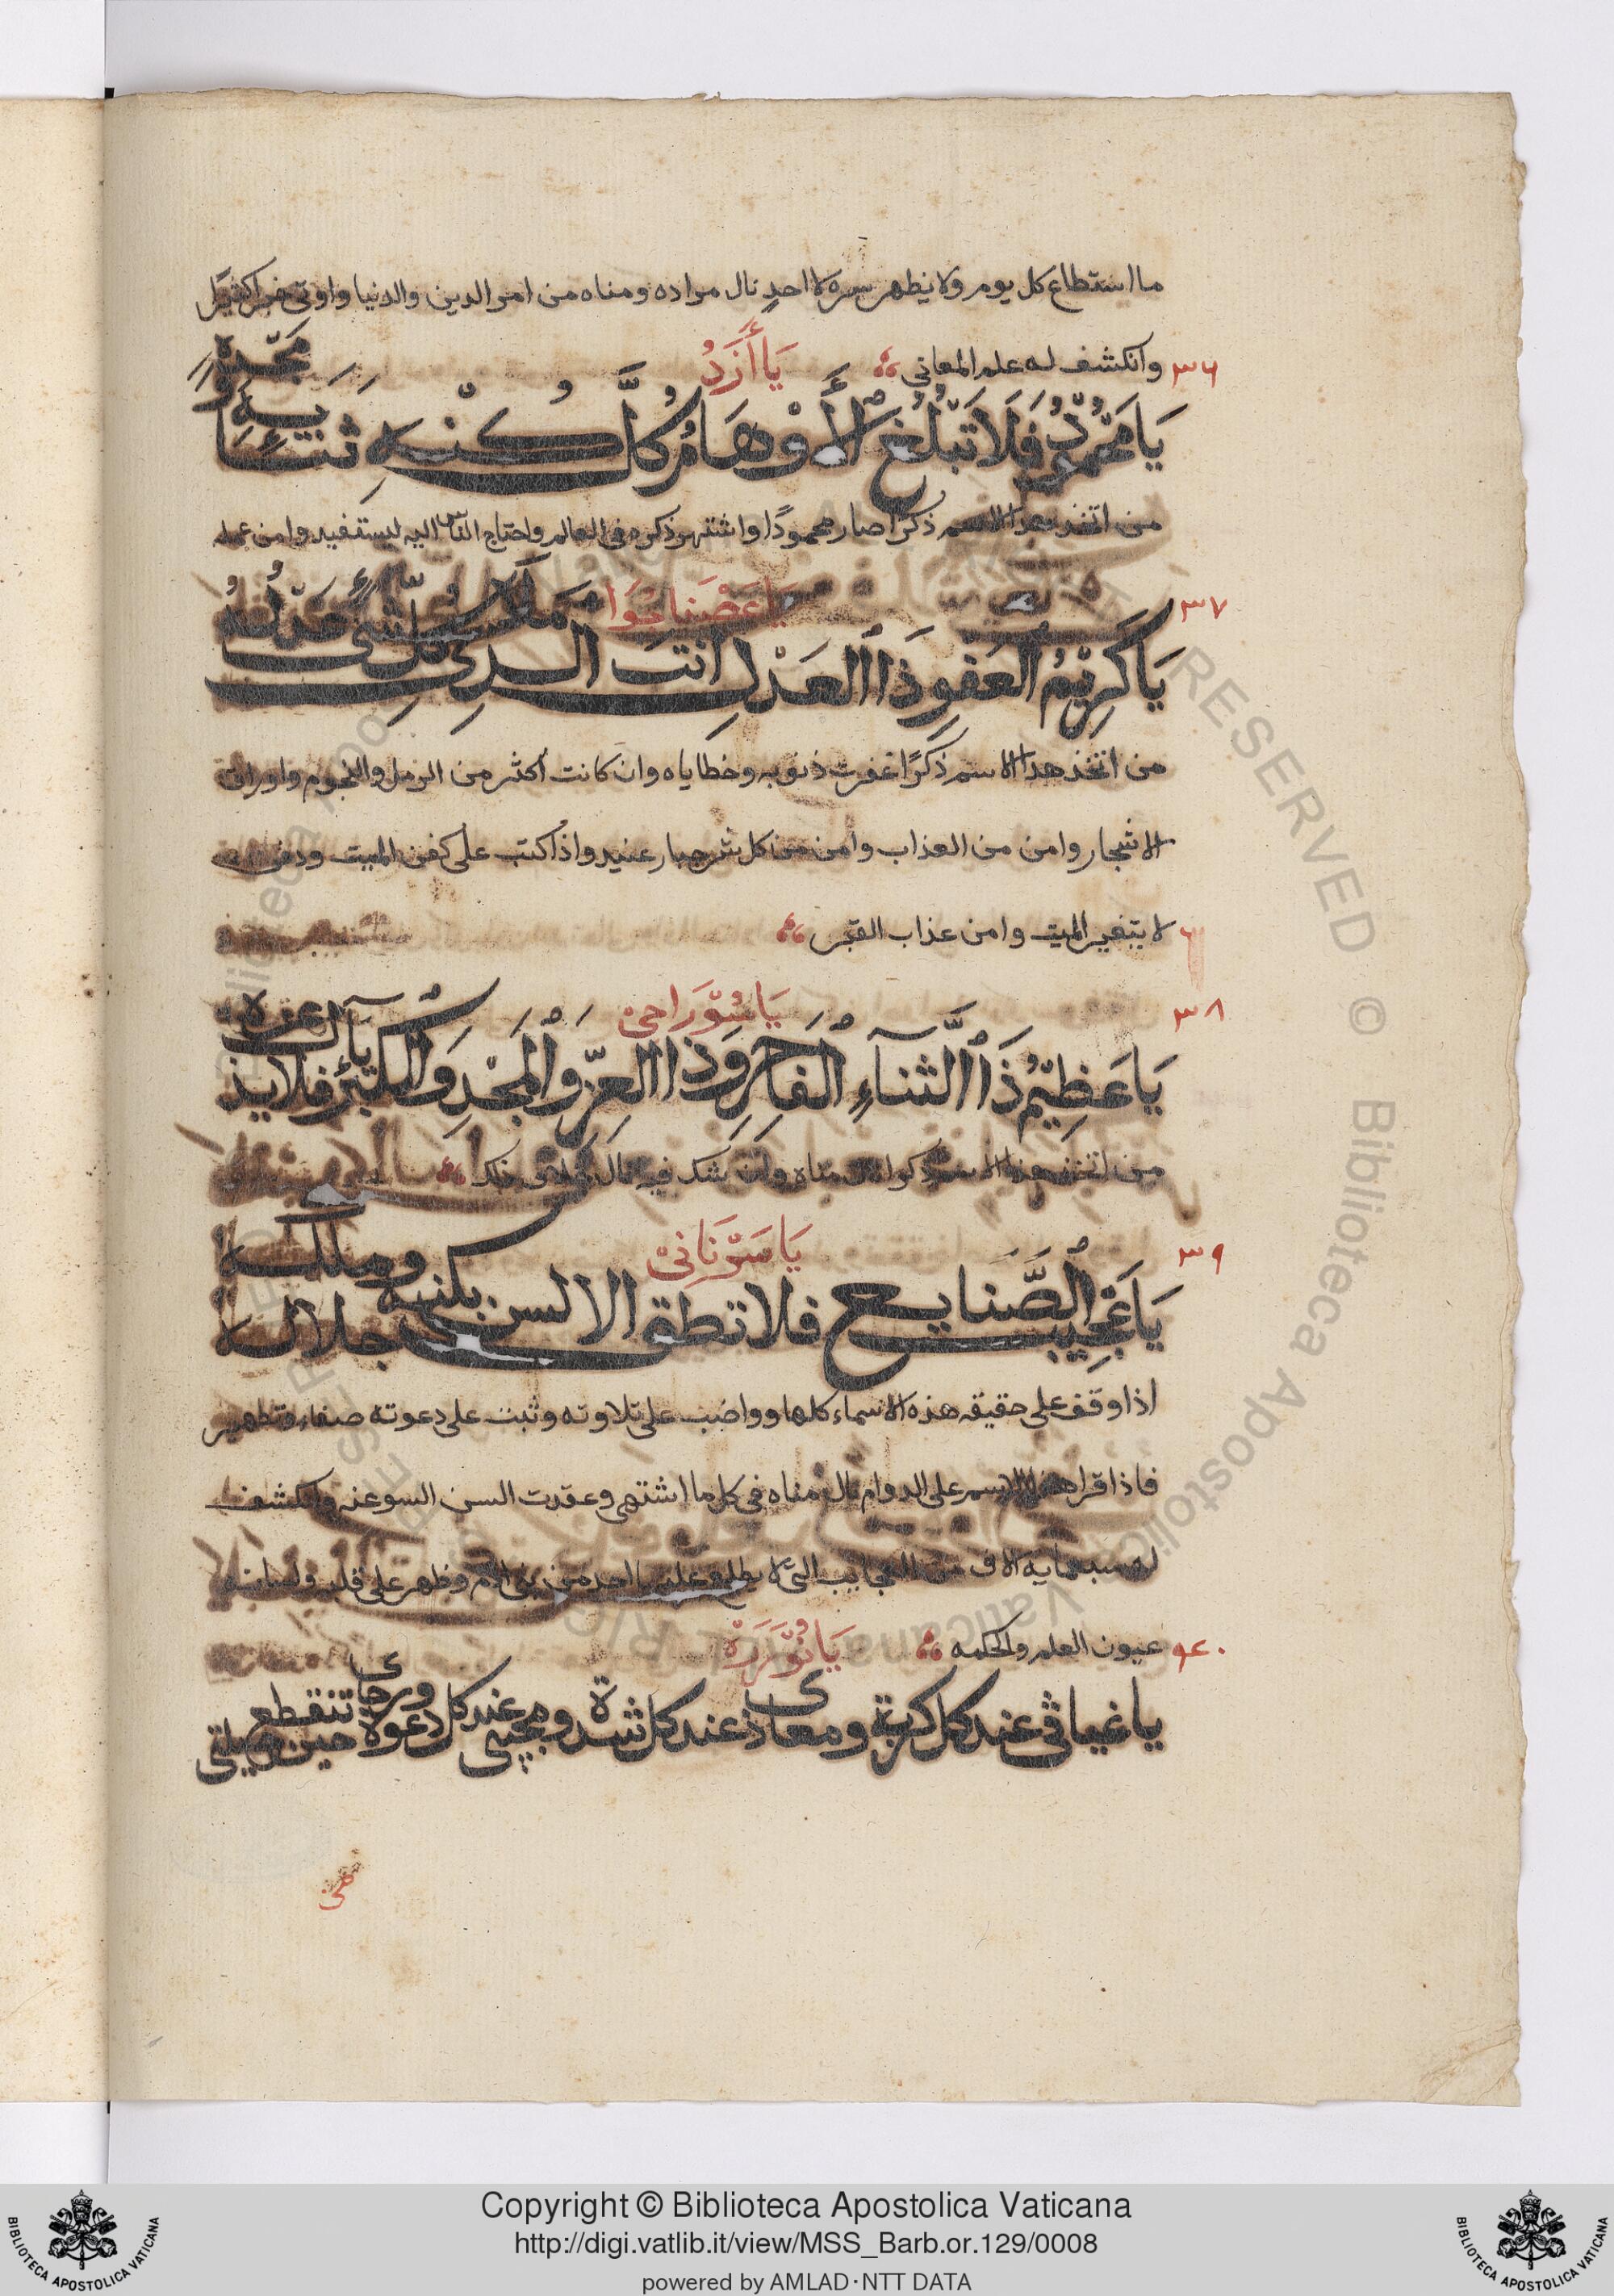 ما استطاع كل يوم ولا يظهر سره لا احدٍ نال مراده ومناه من امر الدين والدنيا واوتى خيرا كثيرًا
٣٦ وانكشف له علم المعاني يَا أَزَدُ
يَا مَحْمُودُ فَلَا تَبْلُغُ الْأَوْهَامُ كُلَّ كُنْهِ ثَنَائِهِ وَمَجْدِهِ
من اتخذ هذا الاسم ذكرًا صار محمودًا واشتهر ذكره في العالم واحتاج الناس اليه ليستفيد وامن عمله
٣٧
يَا كَرِيْمُ العَفْوِ ذَا العَدْلِ انْتَ الَّذِي مَلَأَ كُلَّ شَيْءٍ عَدْلُهُ
من اتخذ هذا الاسم ذكرًا غفرت ذنوبه وخطاياه وان كانت اكثر من الرمل والنجوم واوراق
الاشجار وامن من العذاب وامن من كل شر جبار عنيد واذا كتب على كفن الميت ودفن
لا يتغير الميت وامن عذاب القبر
٣٨
يَا عَظِيْمُ ذَا الثَّنَآءِ الْفَاخِرِ وَذَا العِزِّ وَالْمَجْدِ وَالْكِبْرِيَآءِ فلا يذل عزه
من اتخذ هذا الاسم ذكرا نال مناه
٣٩ يَا سَرْنَانِيْ
يَا عَجِيْبَ الصَّنَايِعِ فلا تنطق الالسن بكنه جلاله وملكه
اذا وقف على حقيقه هذه الاسماء كلها وواضب على تلاوته وثبت على دعوته صفاء وتطهير
فاذا قرا هذا الاسم على الدوام نال مناه في كل ما اشتهى وعقدت السن السو عنه وانكشف
له سبعمايه الاف من العجايب التي لا يطلع عليها احد من بني ادم وظهر على قلبه ولسانه
٤٠ عيون العلم والحكمه
يا غياثى عند كل كربة ومعاذى عند كل شدة ومجيبى عند كل دعوة ورجاى حين تنقطع حيلتى
Copyright © Biblioteca Apostolica Vaticana
http://digi.vatlib.it/view/MSS_Barb.or.129/0008
powered by AMLAD·NTT DATA
BIBLIOTECA APOSTOLICA VATICANA
BIBLIOTECA APOSTOLICA VATICANA